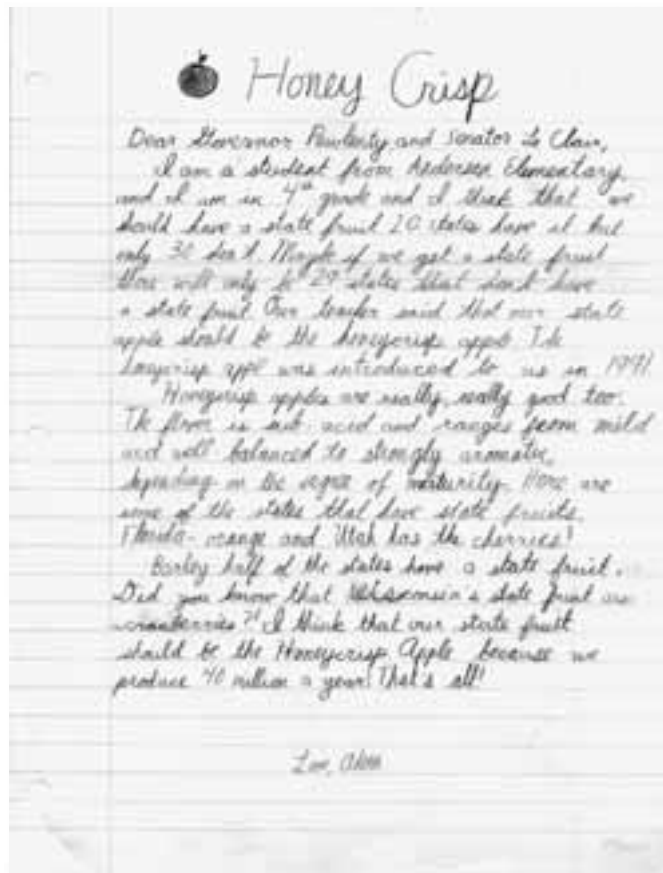 Honey Crisp
Dear Governor Pawlenty and Senator Le Clair,
I am a student from Andersen Elementary,
and I am in 4th grade and I think that we
should have a state fruit 20 states have it but
only 30 don't. Maybe if we get a state fruit
there will only be 29 states that don't have
a state fruit Our teacher said that our state
apple should be the honeycrisp apple The
was introduced to us in 1991
Honeycrisp apples are really, really good too.
The flavor is sub acid and ranges from mild
and well balanced to strongly aromatic,
depending on the degree of maturity. Here are
some of the states that have state fruits.
Florida - orange and Utah has the cherries!
Barley half of the states have a state fruit.
Did you know that Wisconsin's state fruit are
cranberries?! I think that our state fruit
should be the Honeycrisp Apple because we
produce 40 million a year! That's all!
Love,